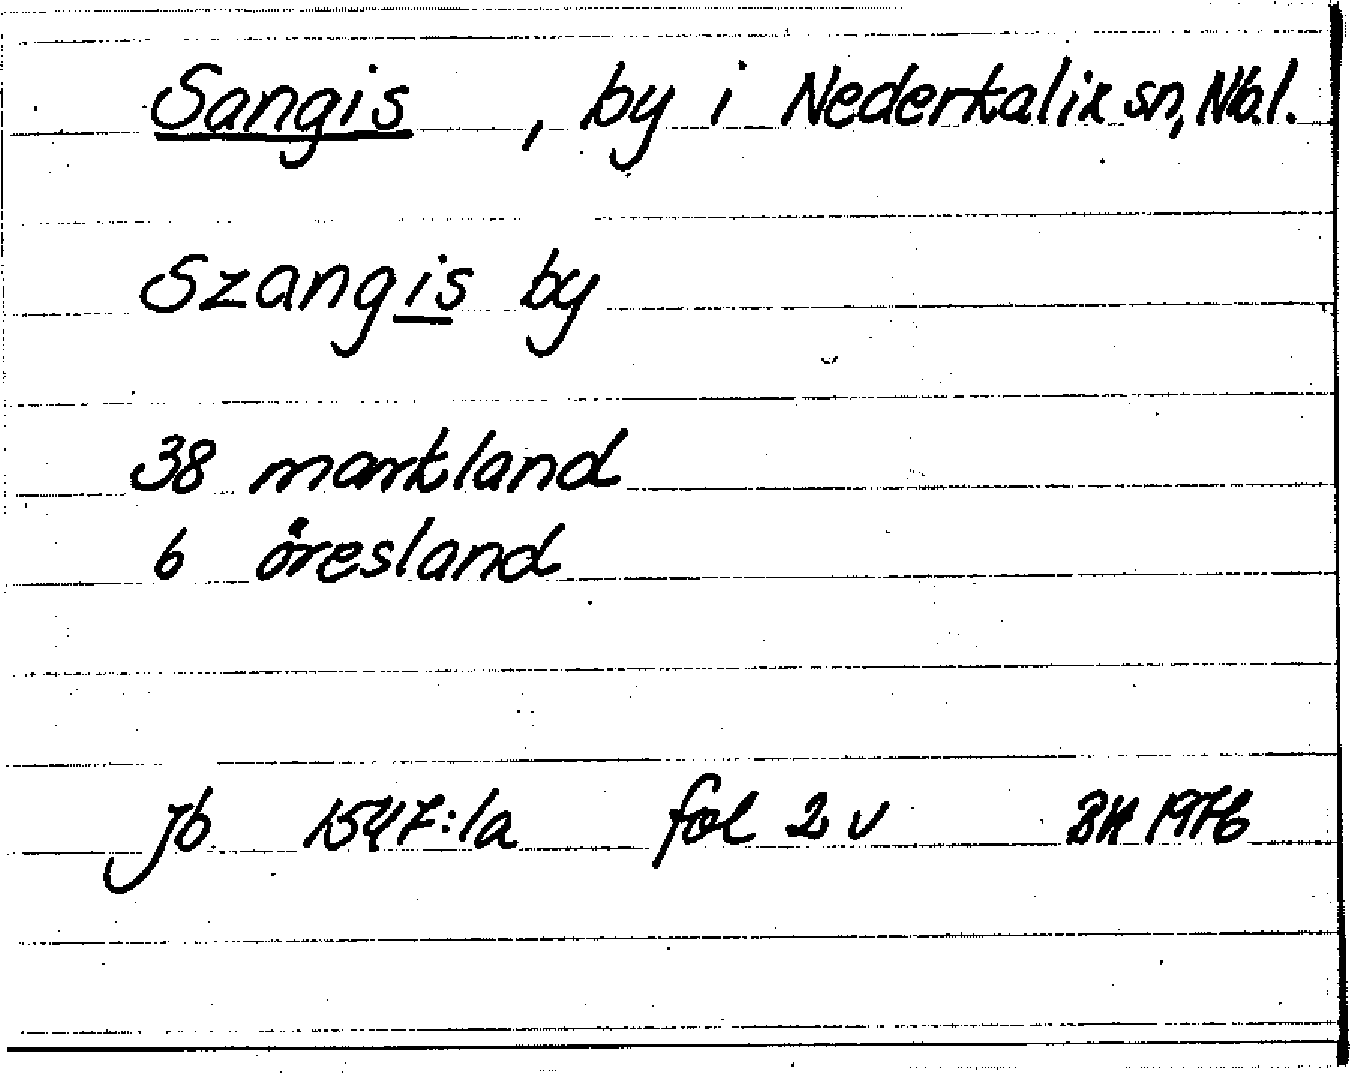 Sangis, by i Nederkalix sn, Nbl.
Szangis by
38 markland
6 öresland
jb 1547:1a fol 2 v BH 1976